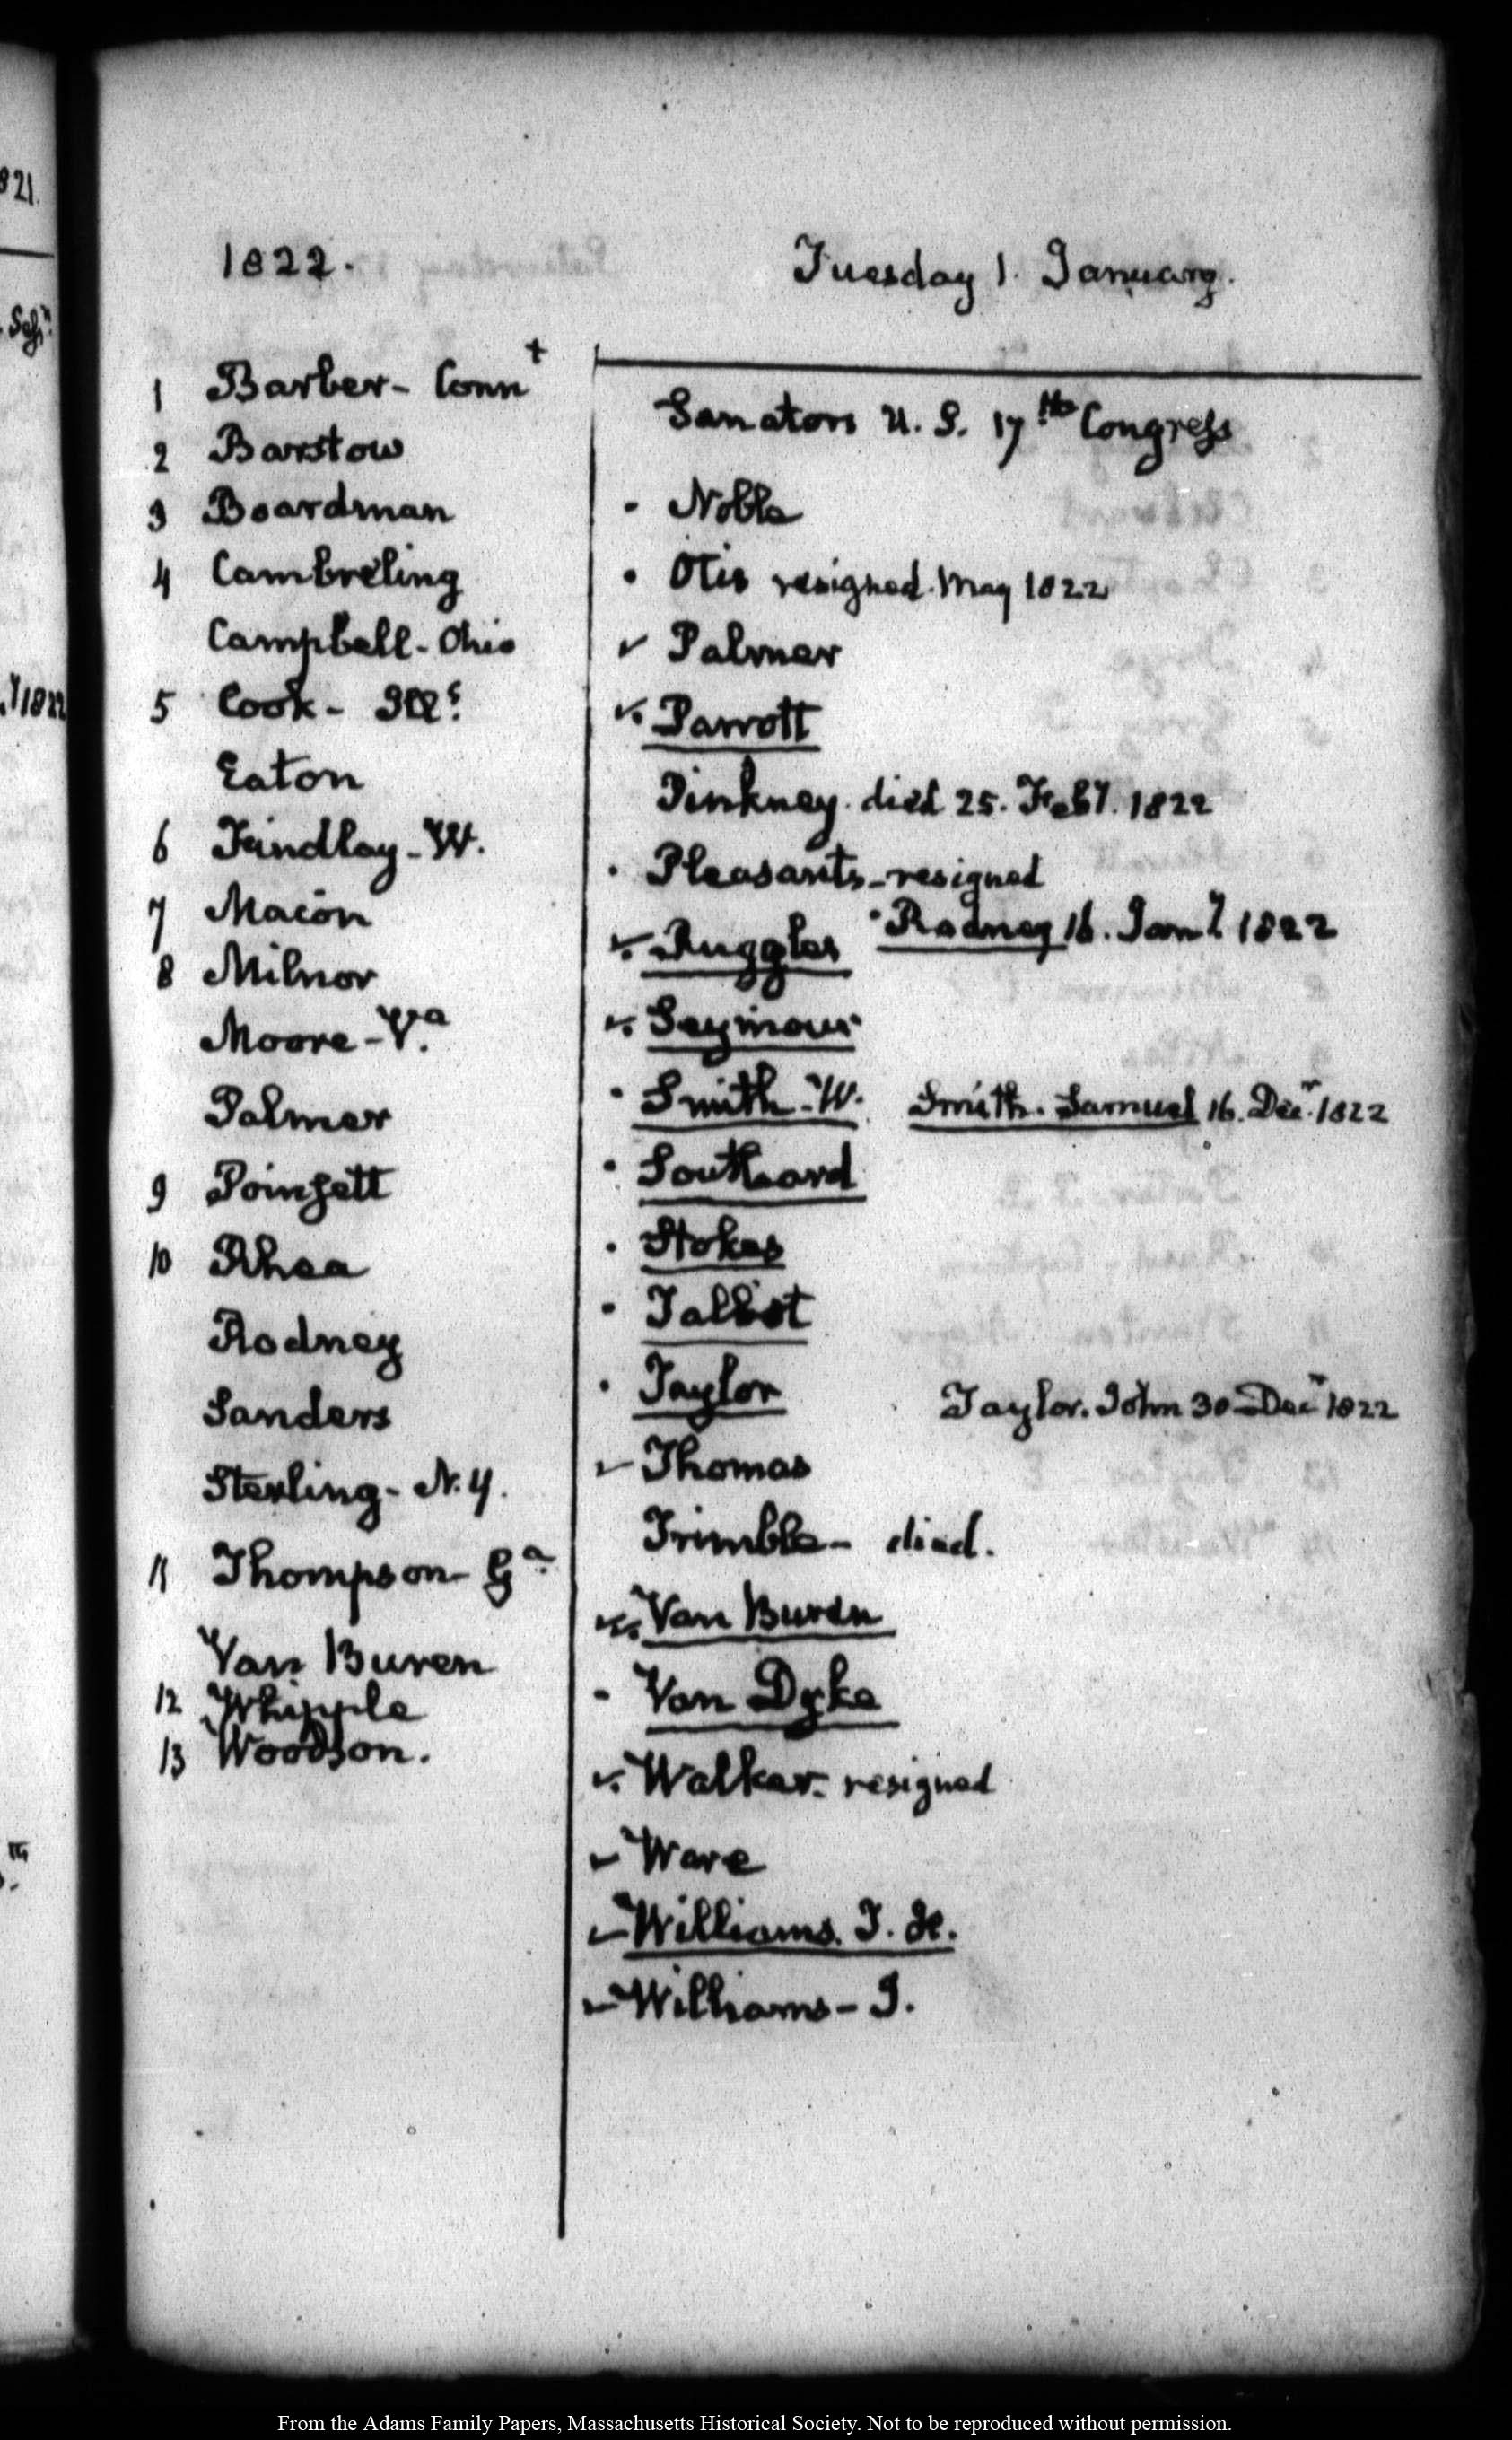 1822.
Tuesday 1. January.
1 Barber - Conn^t
2 Barstow
3 Boardman
4 Cambreling
Campbell - Ohio
5 Cook - Ill^s.
Eaton
6 Findlay - W.
7 Macon
8 Milnor
Moore - V^a.
Palmer
9 Poinsett
10 Rhea
Rodney
Sanders
Sterling - N.Y.
11 Thompson - G^a
Van Buren
12 Whipple
13 Woodson.
Senators U. S. 17^th Congress
Noble
Otis resigned. May 1822
Palmer
Parrott
Pinkney. died 25. Feb^y. 1822
Pleasants - resigned
Ruggles Rodney 16. Jan^y 1822
Seymour
Smith - W. Smith. Samuel 16. Dec^r. 1822
Southard
Stokes
Talbot
Taylor Taylor. John 30 Dec^r 1822
Thomas
Trimble - died.
Van Buren
Van Dyke
Walker - resigned
Ware
Williams. T. H.
Williams - J.
821.
1822
From the Adams Family Papers, Massachusetts Historical Society. Not to be reproduced without permission.